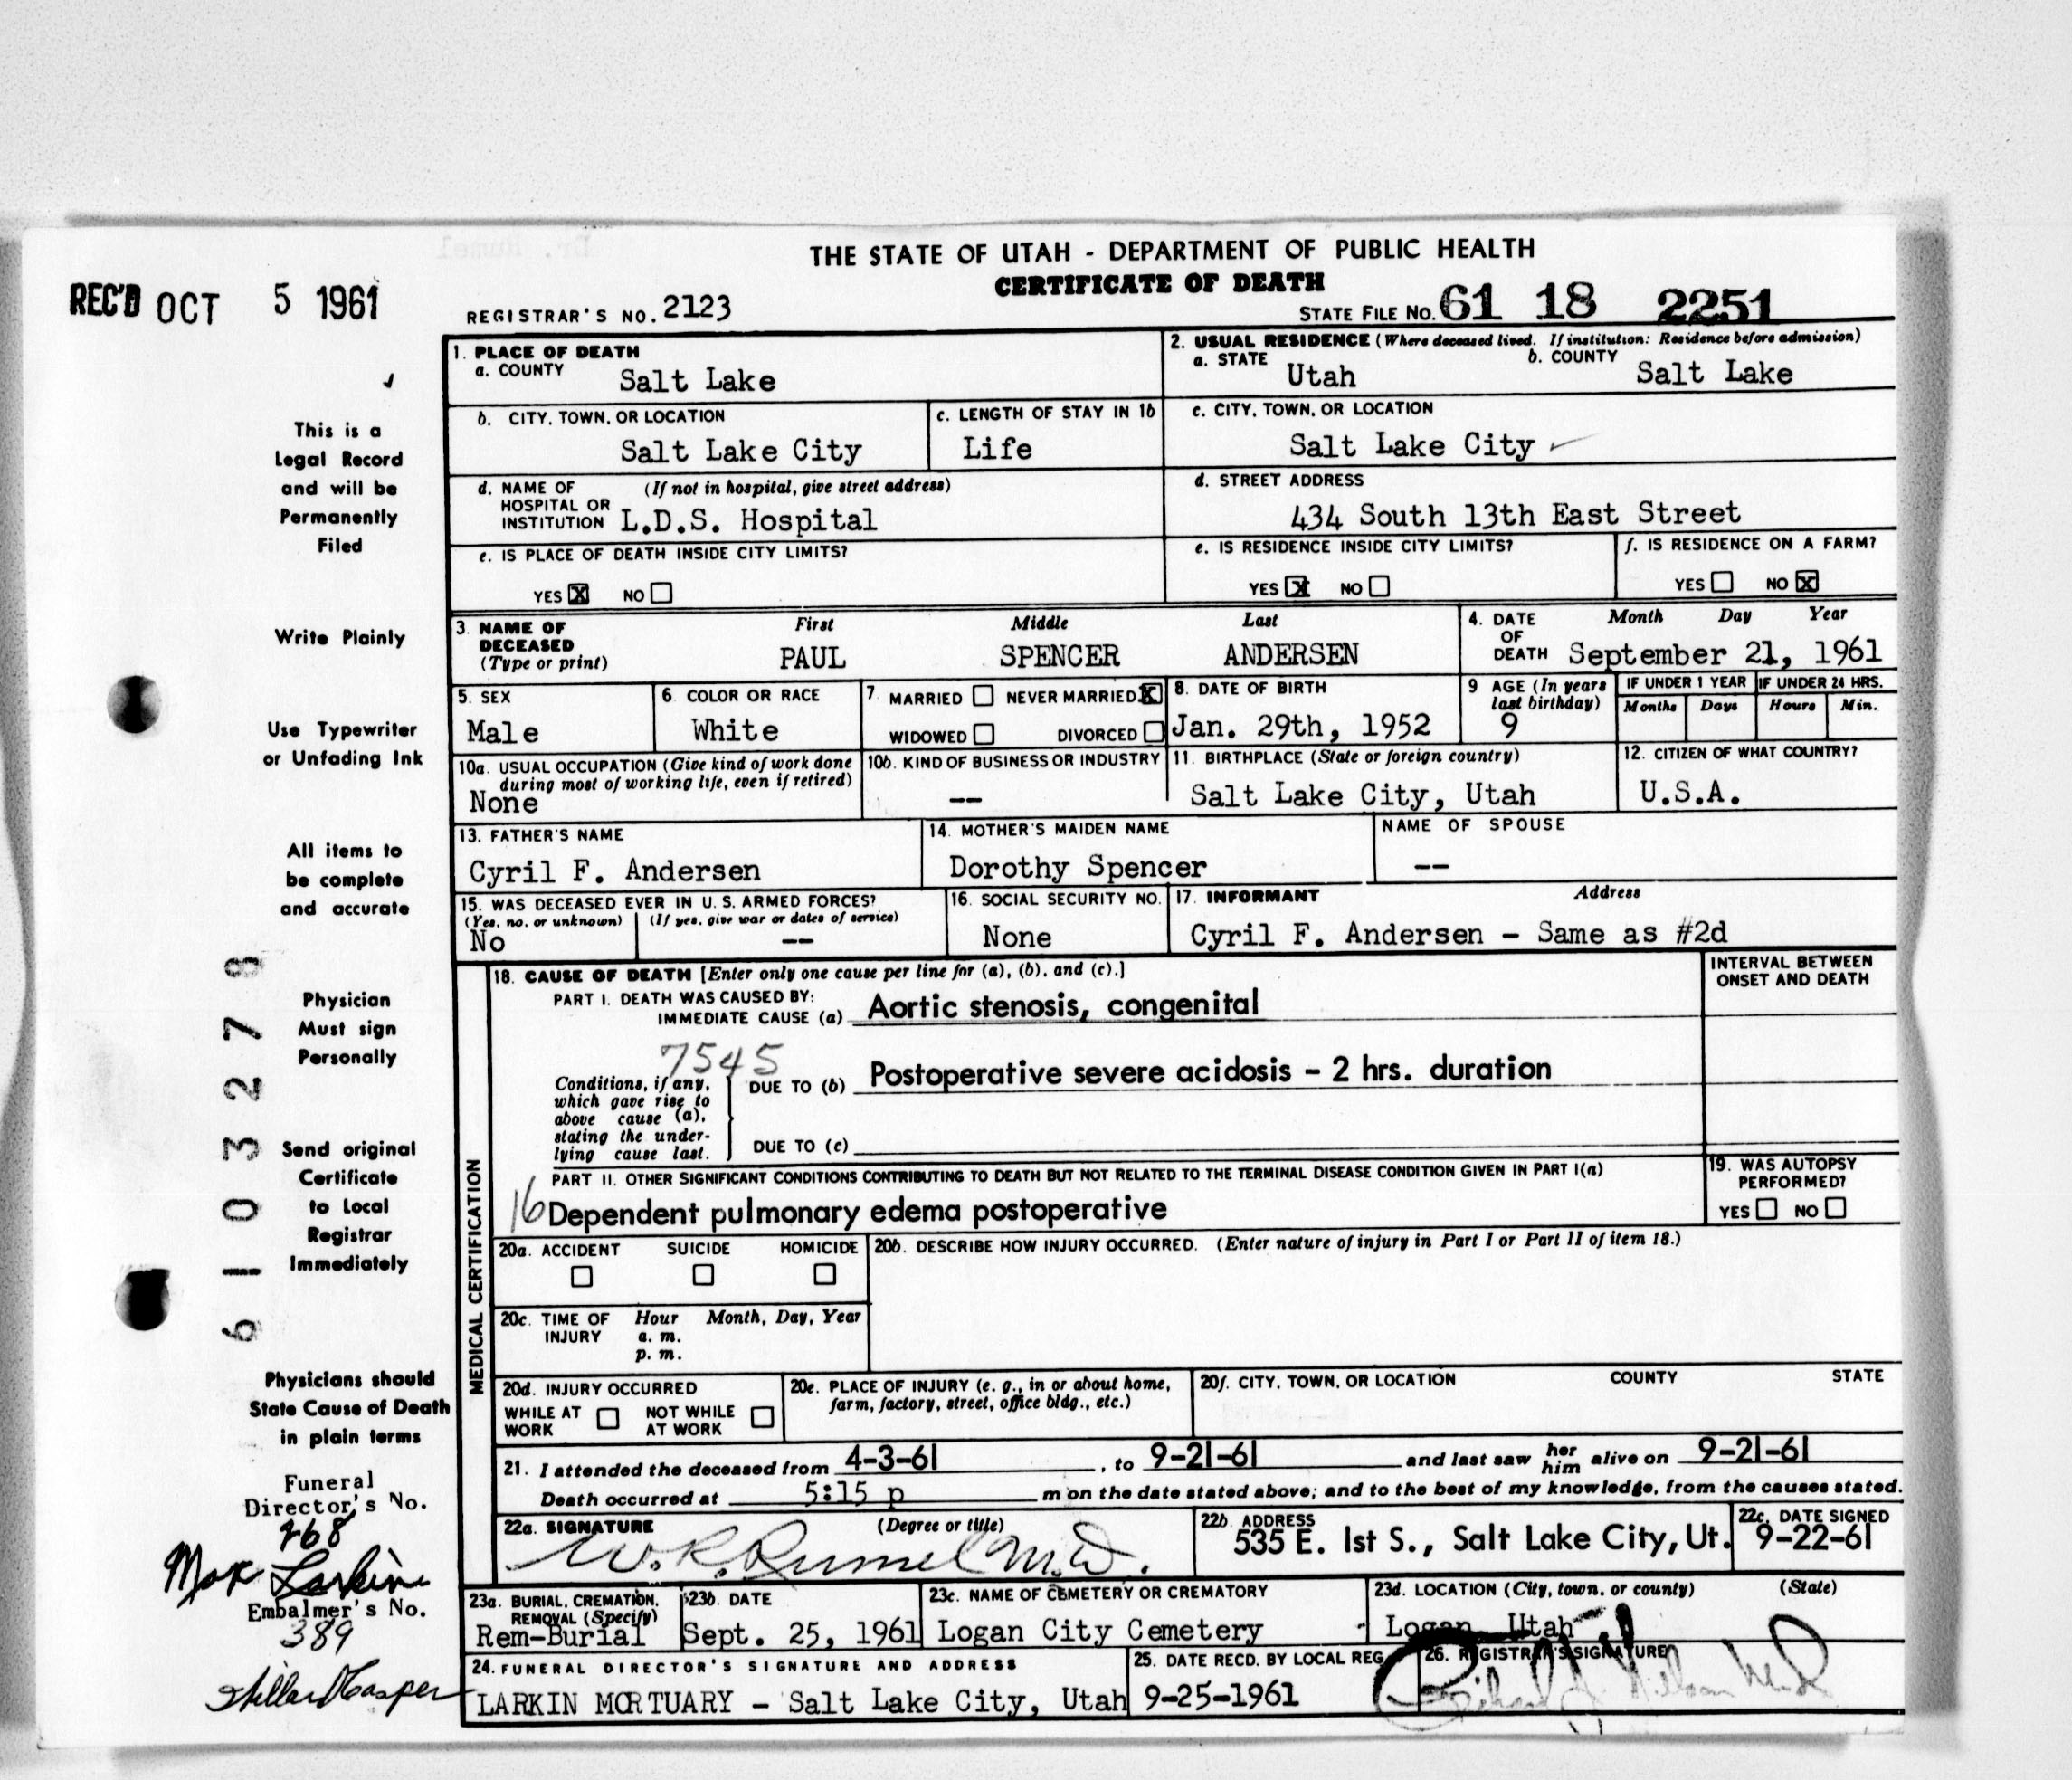 THE STATE OF UTAH - DEPARTMENT OF PUBLIC HEALTH
CERTIFICATE OF DEATH
REC'D OCT 5 1961
REGISTRAR'S NO. 2123
STATE FILE NO. 61 18 2251
1. PLACE OF DEATH
a. COUNTY Salt Lake
2. USUAL RESIDENCE (Where deceased lived. If institution: Residence before admission)
a. STATE Utah b. COUNTY Salt Lake
b. CITY, TOWN, OR LOCATION
Salt Lake City
c. LENGTH OF STAY IN 1b
Life
c. CITY, TOWN, OR LOCATION
Salt Lake City
d. NAME OF HOSPITAL OR INSTITUTION (If not in hospital, give street address)
L.D.S. Hospital
d. STREET ADDRESS
434 South 13th East Street
e. IS PLACE OF DEATH INSIDE CITY LIMITS?
YES X NO
e. IS RESIDENCE INSIDE CITY LIMITS?
YES X NO
f. IS RESIDENCE ON A FARM?
YES NO X
3. NAME OF DECEASED (Type or print)
First Middle Last
PAUL SPENCER ANDERSEN
4. DATE OF DEATH Month Day Year
September 21, 1961
5. SEX
Male
6. COLOR OR RACE
White
7. MARRIED NEVER MARRIED X
WIDOWED DIVORCED
8. DATE OF BIRTH
Jan. 29th, 1952
9 AGE (In years last birthday)
9
IF UNDER 1 YEAR IF UNDER 24 HRS.
Months Days Hours Min.
10a. USUAL OCCUPATION (Give kind of work done during most of working life, even if retired)
None
10b. KIND OF BUSINESS OR INDUSTRY
--
11. BIRTHPLACE (State or foreign country)
Salt Lake City, Utah
12. CITIZEN OF WHAT COUNTRY?
U.S.A.
13. FATHER'S NAME
Cyril F. Andersen
14. MOTHER'S MAIDEN NAME
Dorothy Spencer
NAME OF SPOUSE
--
15. WAS DECEASED EVER IN U. S. ARMED FORCES?
(Yes, no, or unknown) (If yes, give war or dates of service)
No --
16. SOCIAL SECURITY NO.
None
17. INFORMANT Address
Cyril F. Andersen - Same as #2d
MEDICAL CERTIFICATION
18. CAUSE OF DEATH [Enter only one cause per line for (a), (b), and (c).]
INTERVAL BETWEEN ONSET AND DEATH
PART I. DEATH WAS CAUSED BY:
IMMEDIATE CAUSE (a) Aortic stenosis, congenital
7545
Conditions, if any, which gave rise to above cause (a), stating the underlying cause last.
DUE TO (b) Postoperative severe acidosis - 2 hrs. duration
DUE TO (c)
PART II. OTHER SIGNIFICANT CONDITIONS CONTRIBUTING TO DEATH BUT NOT RELATED TO THE TERMINAL DISEASE CONDITION GIVEN IN PART I(a)
16 Dependent pulmonary edema postoperative
19. WAS AUTOPSY PERFORMED?
YES NO
20a. ACCIDENT SUICIDE HOMICIDE
20b. DESCRIBE HOW INJURY OCCURRED. (Enter nature of injury in Part I or Part II of item 18.)
20c. TIME OF INJURY Hour Month, Day, Year
a. m.
p. m.
20d. INJURY OCCURRED
WHILE AT WORK NOT WHILE AT WORK
20e. PLACE OF INJURY (e. g., in or about home, farm, factory, street, office bldg., etc.)
20f. CITY, TOWN, OR LOCATION COUNTY STATE
21. I attended the deceased from 4-3-61, to 9-21-61 and last saw her him alive on 9-21-61
Death occurred at 5:15 p m on the date stated above; and to the best of my knowledge, from the causes stated.
22a. SIGNATURE (Degree or title)
W. R. Rumel M.D.
22b. ADDRESS
535 E. 1st S., Salt Lake City, Ut.
22c. DATE SIGNED
9-22-61
23a. BURIAL, CREMATION, REMOVAL (Specify)
Rem-Burial
23b. DATE
Sept. 25, 1961
23c. NAME OF CEMETERY OR CREMATORY
Logan City Cemetery
23d. LOCATION (City, town, or county) (State)
Logan, Utah
24. FUNERAL DIRECTOR'S SIGNATURE AND ADDRESS
LARKIN MORTUARY - Salt Lake City, Utah
25. DATE RECD. BY LOCAL REG.
9-25-1961
26. REGISTRAR'S SIGNATURE
This is a
Legal Record
and will be
Permanently
Filed
Write Plainly
Use Typewriter
or Unfading Ink
All items to
be complete
and accurate
Physician
Must sign
Personally
Send original
Certificate
to Local
Registrar
Immediately
Physicians should
State Cause of Death
in plain terms
61 03278
Funeral
Director's No.
468
Max Larkin
Embalmer's No.
389